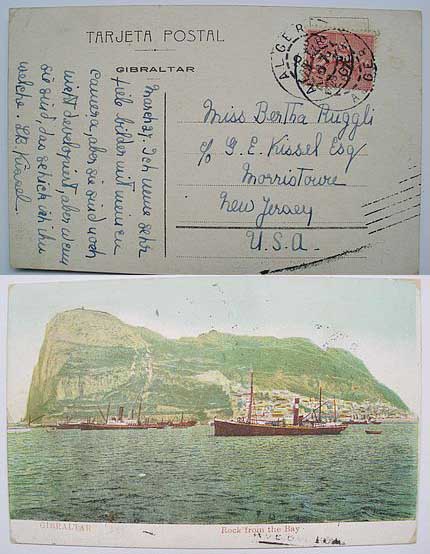 TARJETA POSTAL
GIBRALTAR
ALGER
ALGER
March 31. Ich
sehr
bilder mit
camera, aber sie sind noch
nicht developirt, aber wenn
sie sind, das schick ich ihn
welche. Kissel
Miss Bertha Ruggli
c/o G. E. Kissel Esq
Morristown
New Jersey
U.S.A.
GIBRALTAR
Rock from the Bay